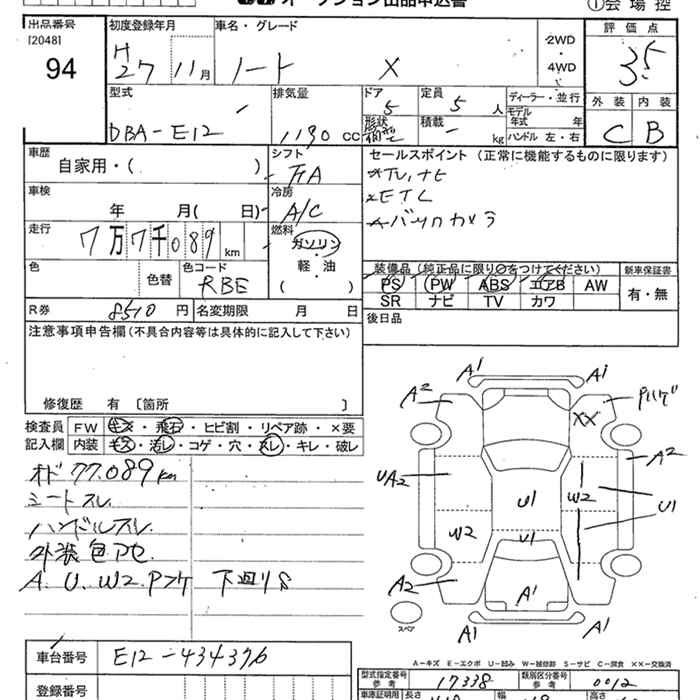 オークション出品申込書
①会場控
出品番号
[2048]
94
初度登録年月
H27 11月
車名・グレード
ノート X
2WD
・
4WD
評価点
3.5
外装 内装
C B
型式
DBA-E12
排気量
1190 CC
ドア
5
形状
箱型
定員
5 人
積載
- kg
ディーラー・並行
モデル年式 年
ハンドル 左・右
車歴
自家用・( )
シフト
FA
セールスポイント (正常に機能するものに限ります)
TV,ナビ
ETC
バックカメラ
車検
年 月( 日)
冷房
A/C
走行
7万7千089 km
燃料
ガソリン
軽・油
( )
色
色替
色コード
RBE
装備品 (純正品に限り○をつけてください)
新車保証書
PS PW ABS エアB AW
有・無
SR ナビ TV カワ
R券 8510 円
名変期限 月 日
後日品
注意事項申告欄 (不具合内容等は具体的に記入して下さい)
修復歴 有 〔箇所 〕
検査員記入欄
FW キズ・飛石・ヒビ割・リペア跡・×要
内装 キズ・汚レ・コゲ・穴・スレ・キレ・破レ
オド77.089km
シートスレ
ハンドルスレ
外装色アセ
A. U. W2. Pフケ 下回りS
A1
A1
A2
Pハゲ
XX
A2
UA2
W2
U1
U1
W2
U1
A2
A1
A1
A1
スペア
A-キズ E-エクボ U-凹み W-補修跡 S-サビ C-腐食 ××-交換済
車台番号 E12-434376
型式指定番号
参考
17338
類別区分番号
参考
0012
登録番号
車庫証明用
長さ
幅
高さ